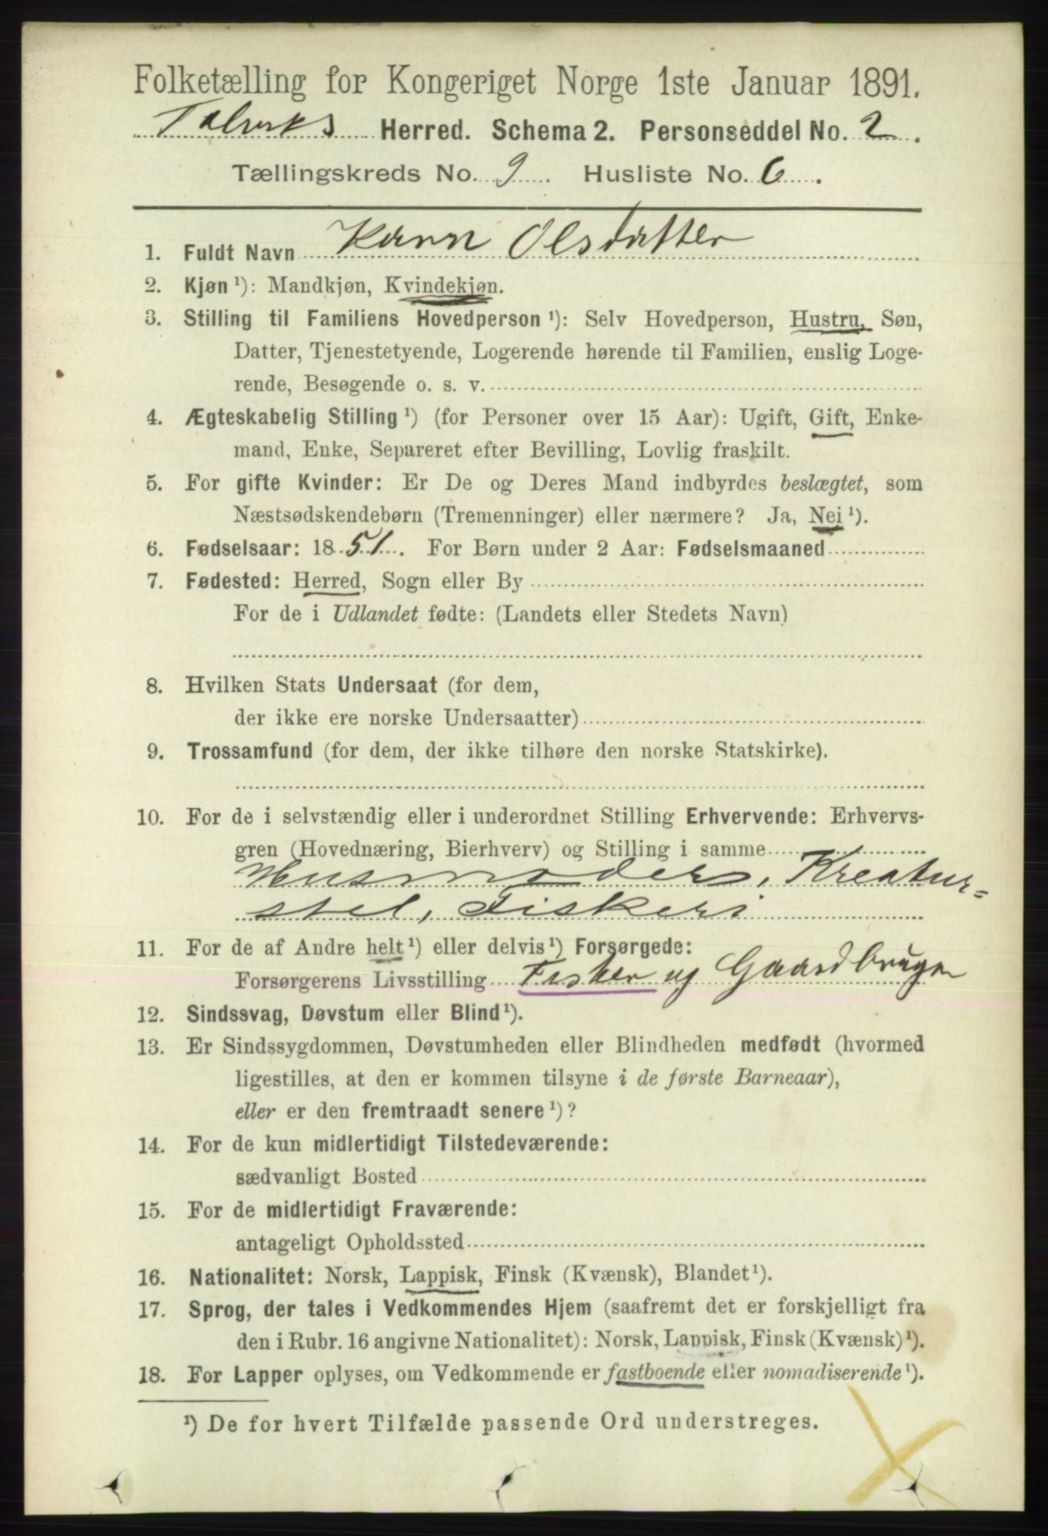 Folketælling for Kongeriget Norge 1ste Januar 1891.
Talviks Herred. Schema 2. Personseddel No. 2.
Tællingskreds No. 9. Husliste No. 6.
1. Fuldt Navn Karen Olsdatter
2. Kjøn ¹): Mandkjøn, Kvindekjøn.
3. Stilling til Familiens Hovedperson ¹): Selv Hovedperson, Hustru, Søn,
Datter, Tjenestetyende, Logerende hørende til Familien, enslig Loge-
rende, Besøgende o. s. v.
4. Ægteskabelig Stilling ¹) (for Personer over 15 Aar): Ugift, Gift, Enke-
mand, Enke, Separeret efter Bevilling, Lovlig fraskilt.
5. For gifte Kvinder: Er De og Deres Mand indbyrdes beslægtet, som
Næstsødskendebørn (Tremenninger) eller nærmere? Ja, Nei ¹).
6. Fødselsaar: 1851. For Børn under 2 Aar: Fødselsmaaned
7. Fødested: Herred, Sogn eller By
For de i Udlandet fødte: (Landets eller Stedets Navn)
8. Hvilken Stats Undersaat (for dem,
der ikke ere norske Undersaatter)
9. Trossamfund (for dem, der ikke tilhøre den norske Statskirke).
10. For de i selvstændig eller i underordnet Stilling Erhvervende: Erhvervs-
gren (Hovednæring, Bierhverv) og Stilling i samme
Husmoders, Kreatur=
stel, Fiskeri
11. For de af Andre helt ¹) eller delvis ¹) Forsørgede:
Forsørgerens Livsstilling Fisker og Gaardbruger
12. Sindssvag, Døvstum eller Blind ¹).
13. Er Sindssygdommen, Døvstumheden eller Blindheden medfødt (hvormed
ligestilles, at den er kommen tilsyne i de første Barneaar),
eller er den fremtraadt senere ¹)?
14. For de kun midlertidigt Tilstedeværende:
sædvanligt Bosted
15. For de midlertidigt Fraværende:
antageligt Opholdssted
16. Nationalitet: Norsk, Lappisk, Finsk (Kvænsk), Blandet ¹).
17. Sprog, der tales i Vedkommendes Hjem (saafremt det er forskjelligt fra
den i Rubr. 16 angivne Nationalitet): Norsk, Lappisk, Finsk (Kvænsk) ¹).
18. For Lapper oplyses, om Vedkommende er fastboende eller nomadiserende ¹).
¹) De for hvert Tilfælde passende Ord understreges.